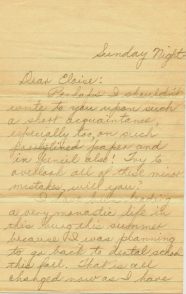 Sunday Night
Dear Eloise:
Perhaps I shouldn't
write to you upon such
a short acquaintance,
especially too, on such
paper and
in pencil also! Try to
overlook all of these minor
mistakes, will you?
I have been leading
a very monastic life in
this burg this summer
because I was planning
to go back to dental school
this fall. That is all
changed now as I have